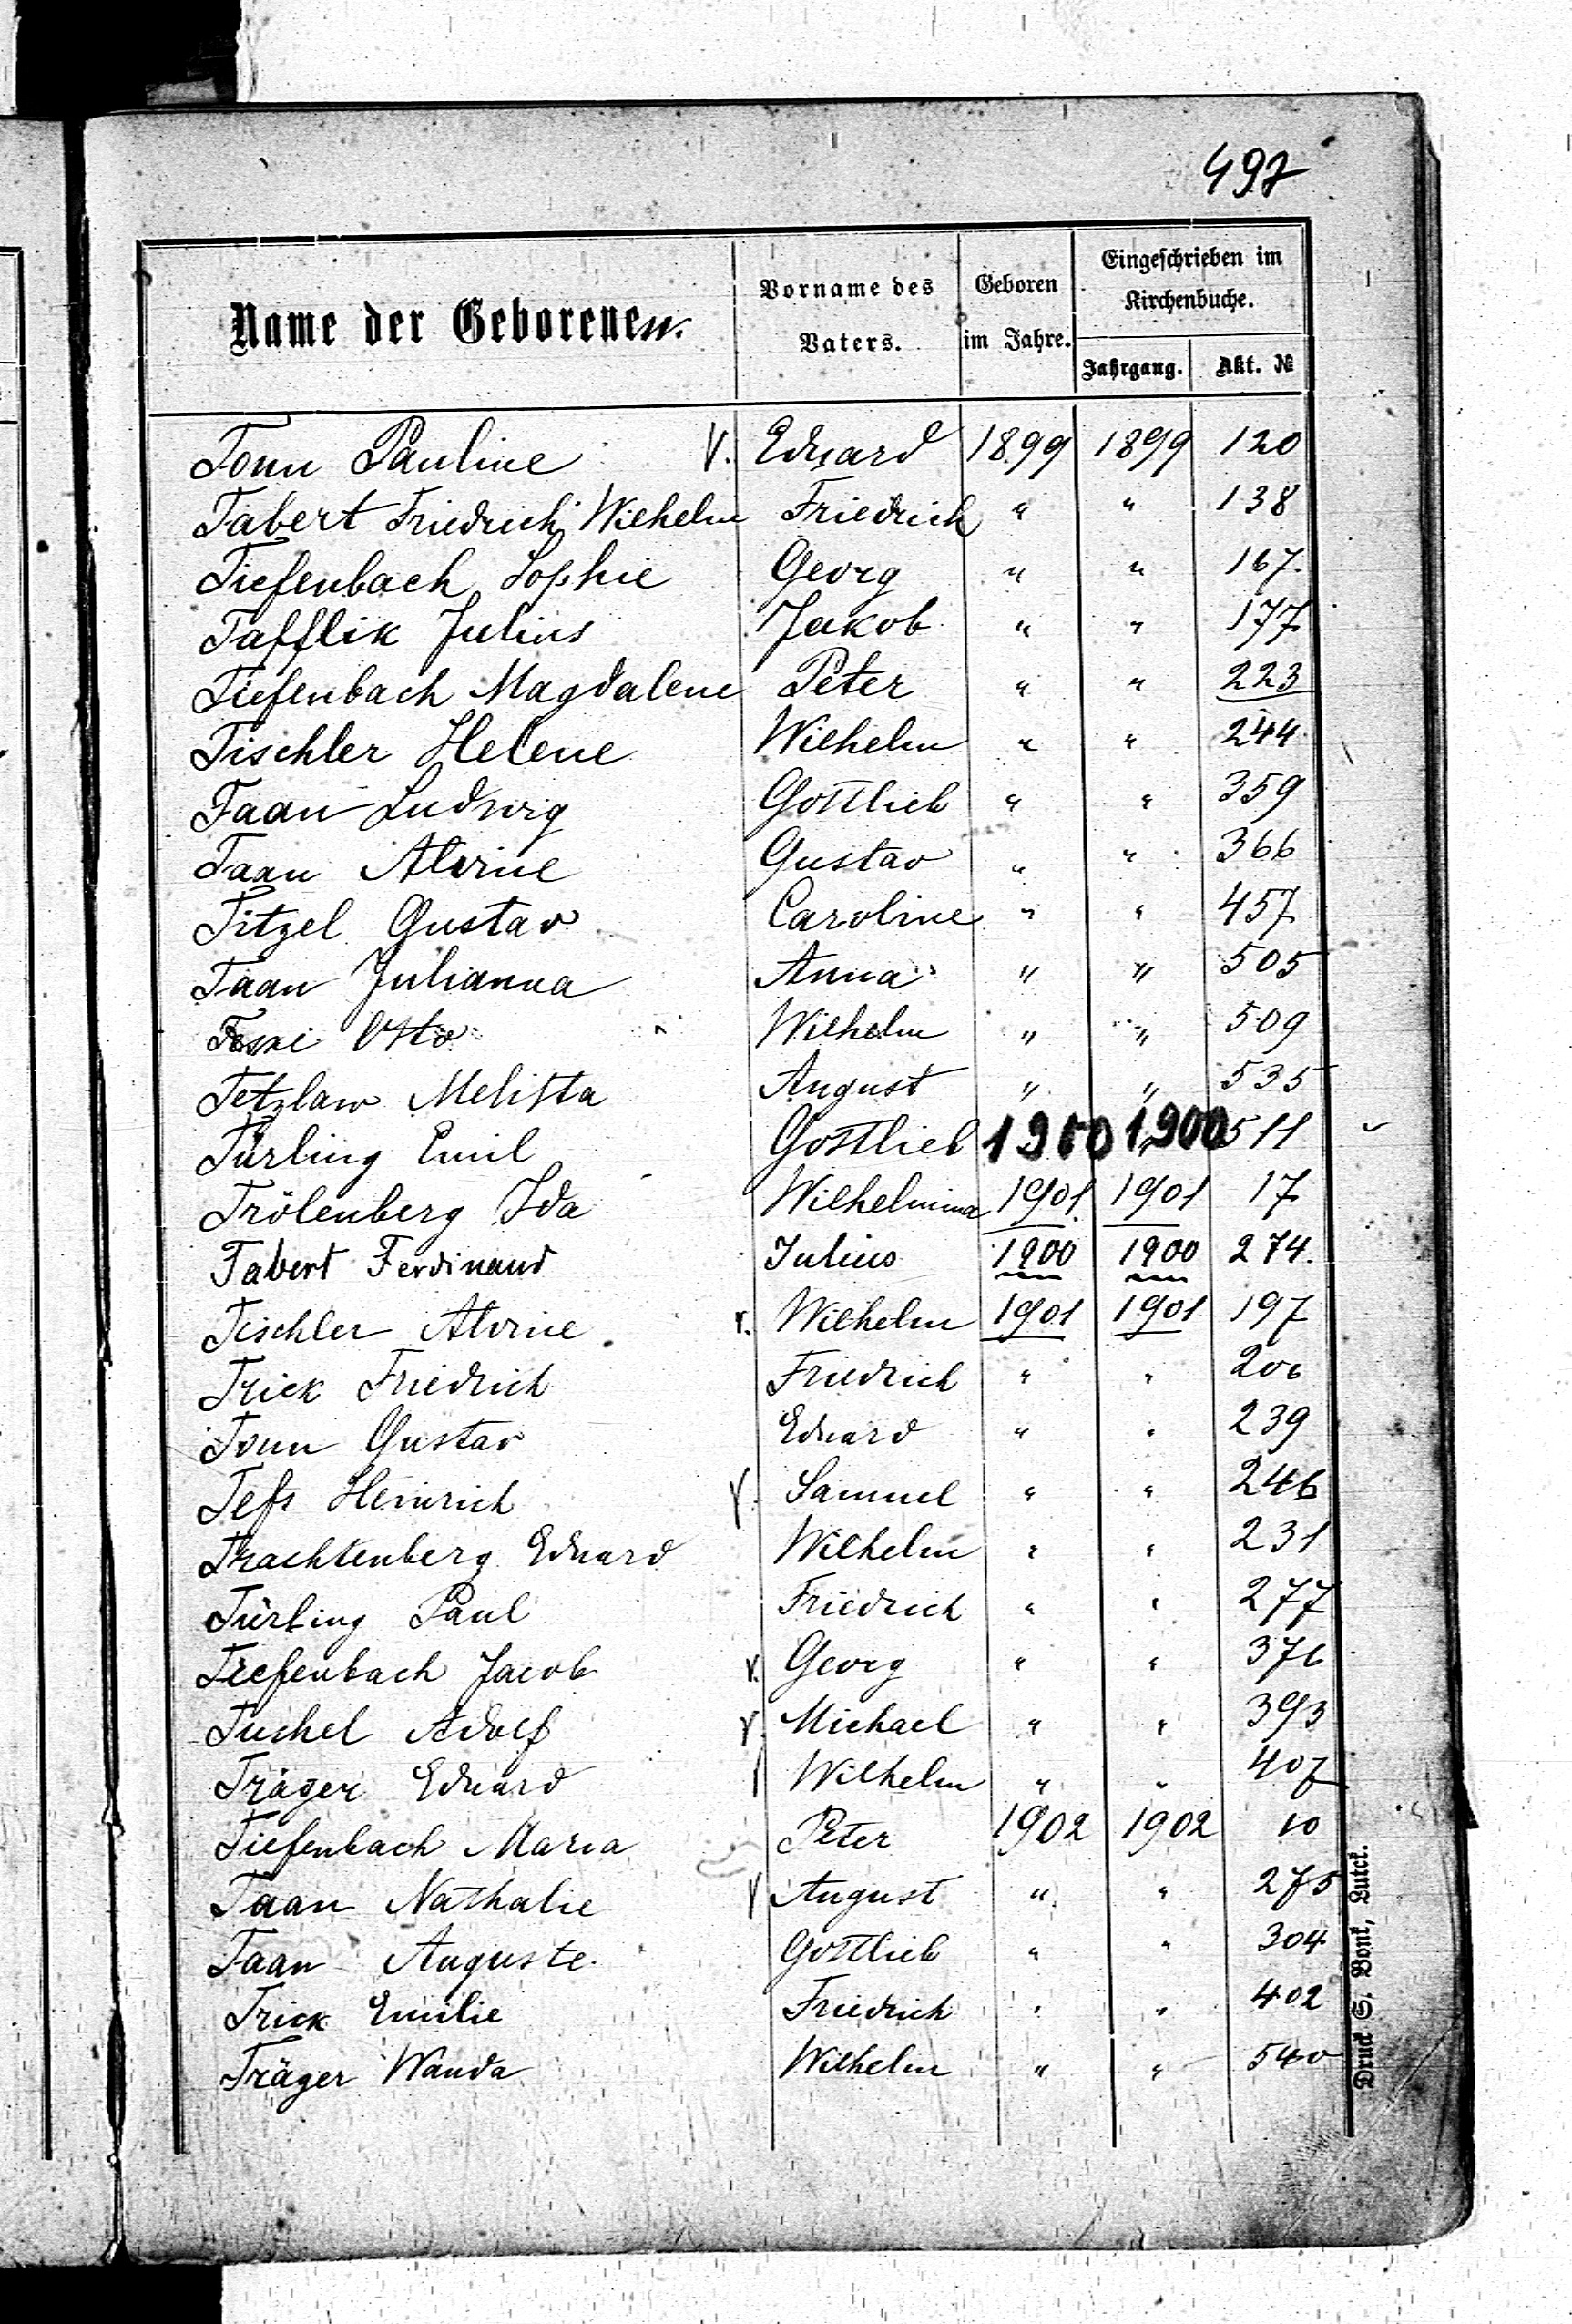 497
Name der Geborenen.
Vorname des Vaters.
Geboren im Jahre.
Eingeschrieben im Kirchenbuche.
Jahrgang. Akt. №
Tonn Pauline V. Eduard 1899 1899 120
Tabert Friedrich Wilhelm Friedrich " " 138
Tiefenbach Sophie Georg " " 167.
Tafflik Julius Jakob " " 177
Tiefenbach Magdalene Peter " " 223
Tischler Helene Wilhelm " " 244
Taan Ludwig Gottlieb " " 359
Taan Alvine Gustav " " 366
Titzel Gustav Caroline " " 457
Taan Julianna Anna " " 505
Otto Wilhelm " " 509
Tetzlaw Melitta August " " 535
Türling Emil Gottlieb 1900 1900 511
Trölenberg Ida Wilhelmina 1901 1901 17
Tabert Ferdinand Julius 1900 1900 274.
Tischler Alvine v. Wilhelm 1901 1901 197
Trick Friedrich Friedrich " " 206
Tonn Gustav Eduard " " 239
Heinrich V. Samuel " " 246
Trachtenberg Eduard Wilhelm " " 231
Türling Paul Friedrich " " 277
Tiefenbach Jacob v. Georg " " 376
Tuchel Adolf V. Michael " " 393
Träger Eduard Wilhelm " " 407
Tiefenbach Maria Peter 1902 1902 10
Taan Nathalie V August " " 275
Taan Auguste Gottlieb " " 304
Trick Emilie Friedrich " " 402
Träger Wanda Wilhelm " " 540
Druck S. Bonk, Lutck.